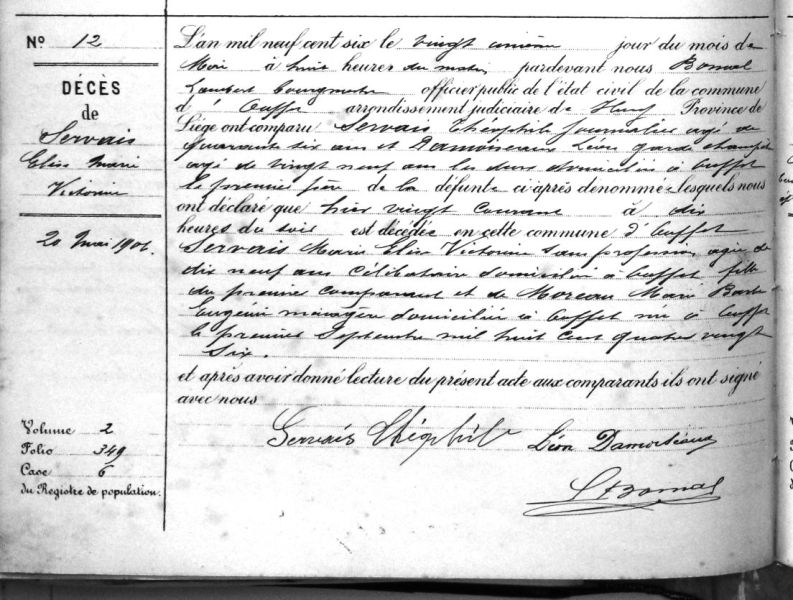 No 12
DÉCÈS
de
Servais
Elise Marie
Victorine
20 Mai 1906.
Volume 2
Folio 349
Case 6
du Registre de population.
L'an mil neuf cent six le vingt unième jour du mois de
Mai à huit heures du matin, pardevant nous Bomal
Lambert officier public de l'état civil de la commune
d' arrondissement judiciaire de Huy Province de
Liège ont comparu Servais Théophile journalier agé de
quarante six ans et Damoiseaux Léon garde champêt
agé de vingt neuf ans les deux domiciliés à
le premier père de la défunte ci après dénommée lesquels nous
ont déclaré que hier vingt courant à dix
heures du soir est décédée en cette commune d'
Servais Marie Elise Victorine sans profession agée de
dix neuf ans célibataire domiciliée à fille
du premier comparant et de Moreau Marie Barbe
Eugénie ménagère domiciliée à née à
le premier Septembre mil huit cent quatre vingt
Six.
et après avoir donné lecture du présent acte aux comparants ils ont signé
avec nous
Servais Théophile Léon Damoiseaux
L Bomal